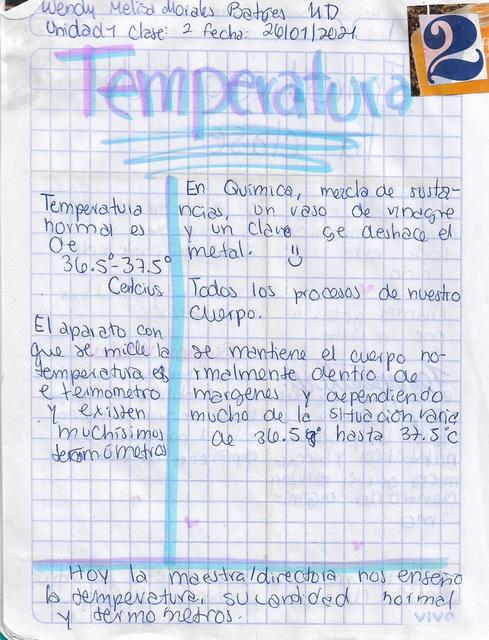 Wendy Melisa Morales Batres UD
Unidad 1 Clase: 2 Fecha: 26/01/2021
2
Temperatura
Temperatura
normal es
De
36.5°-37.5°
Cencius
El aparato con
que se mide la
temperatura es
e termometro
y existen
muchísimos
termómetros
En Química, mezcla de susta-
ncias, un vaso de vinagre
y un clavo se deshace el
metal.
Todos los procesos de nuestro
cuerpo.
se mantiene el cuerpo no-
rmalmente dentro de
margenes y dependiendo
mucho de la situación varia
de 36.5° hasta 37.5°c
Hoy la maestra/directora nos enseño
la temperatura, su cantidad normal
y termometros.
VIVA